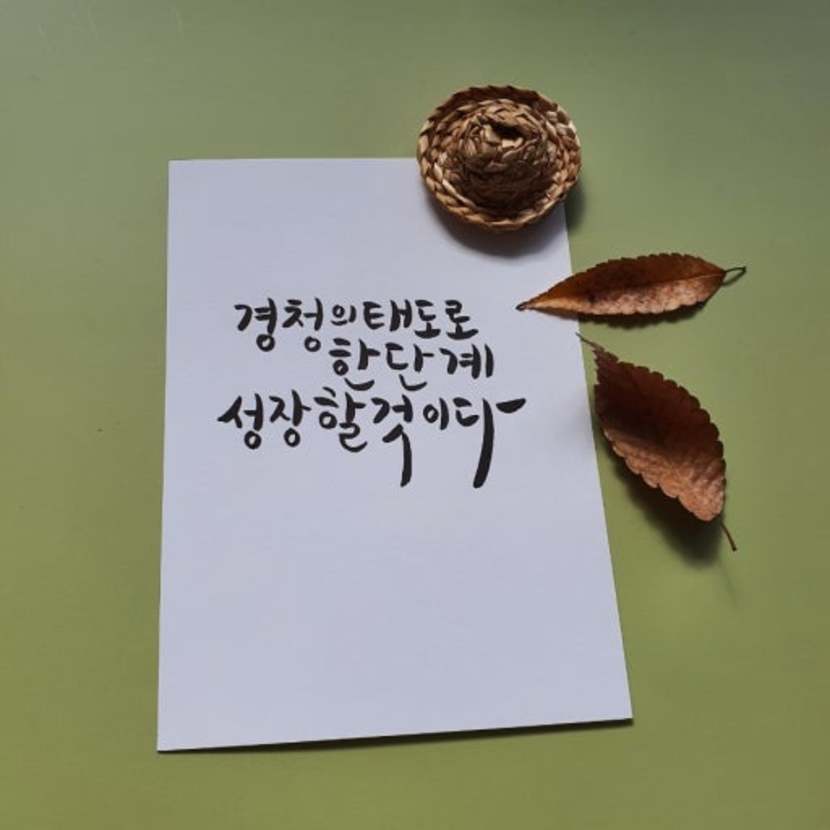 경청의 태도로
한 단계
성장할 것이다